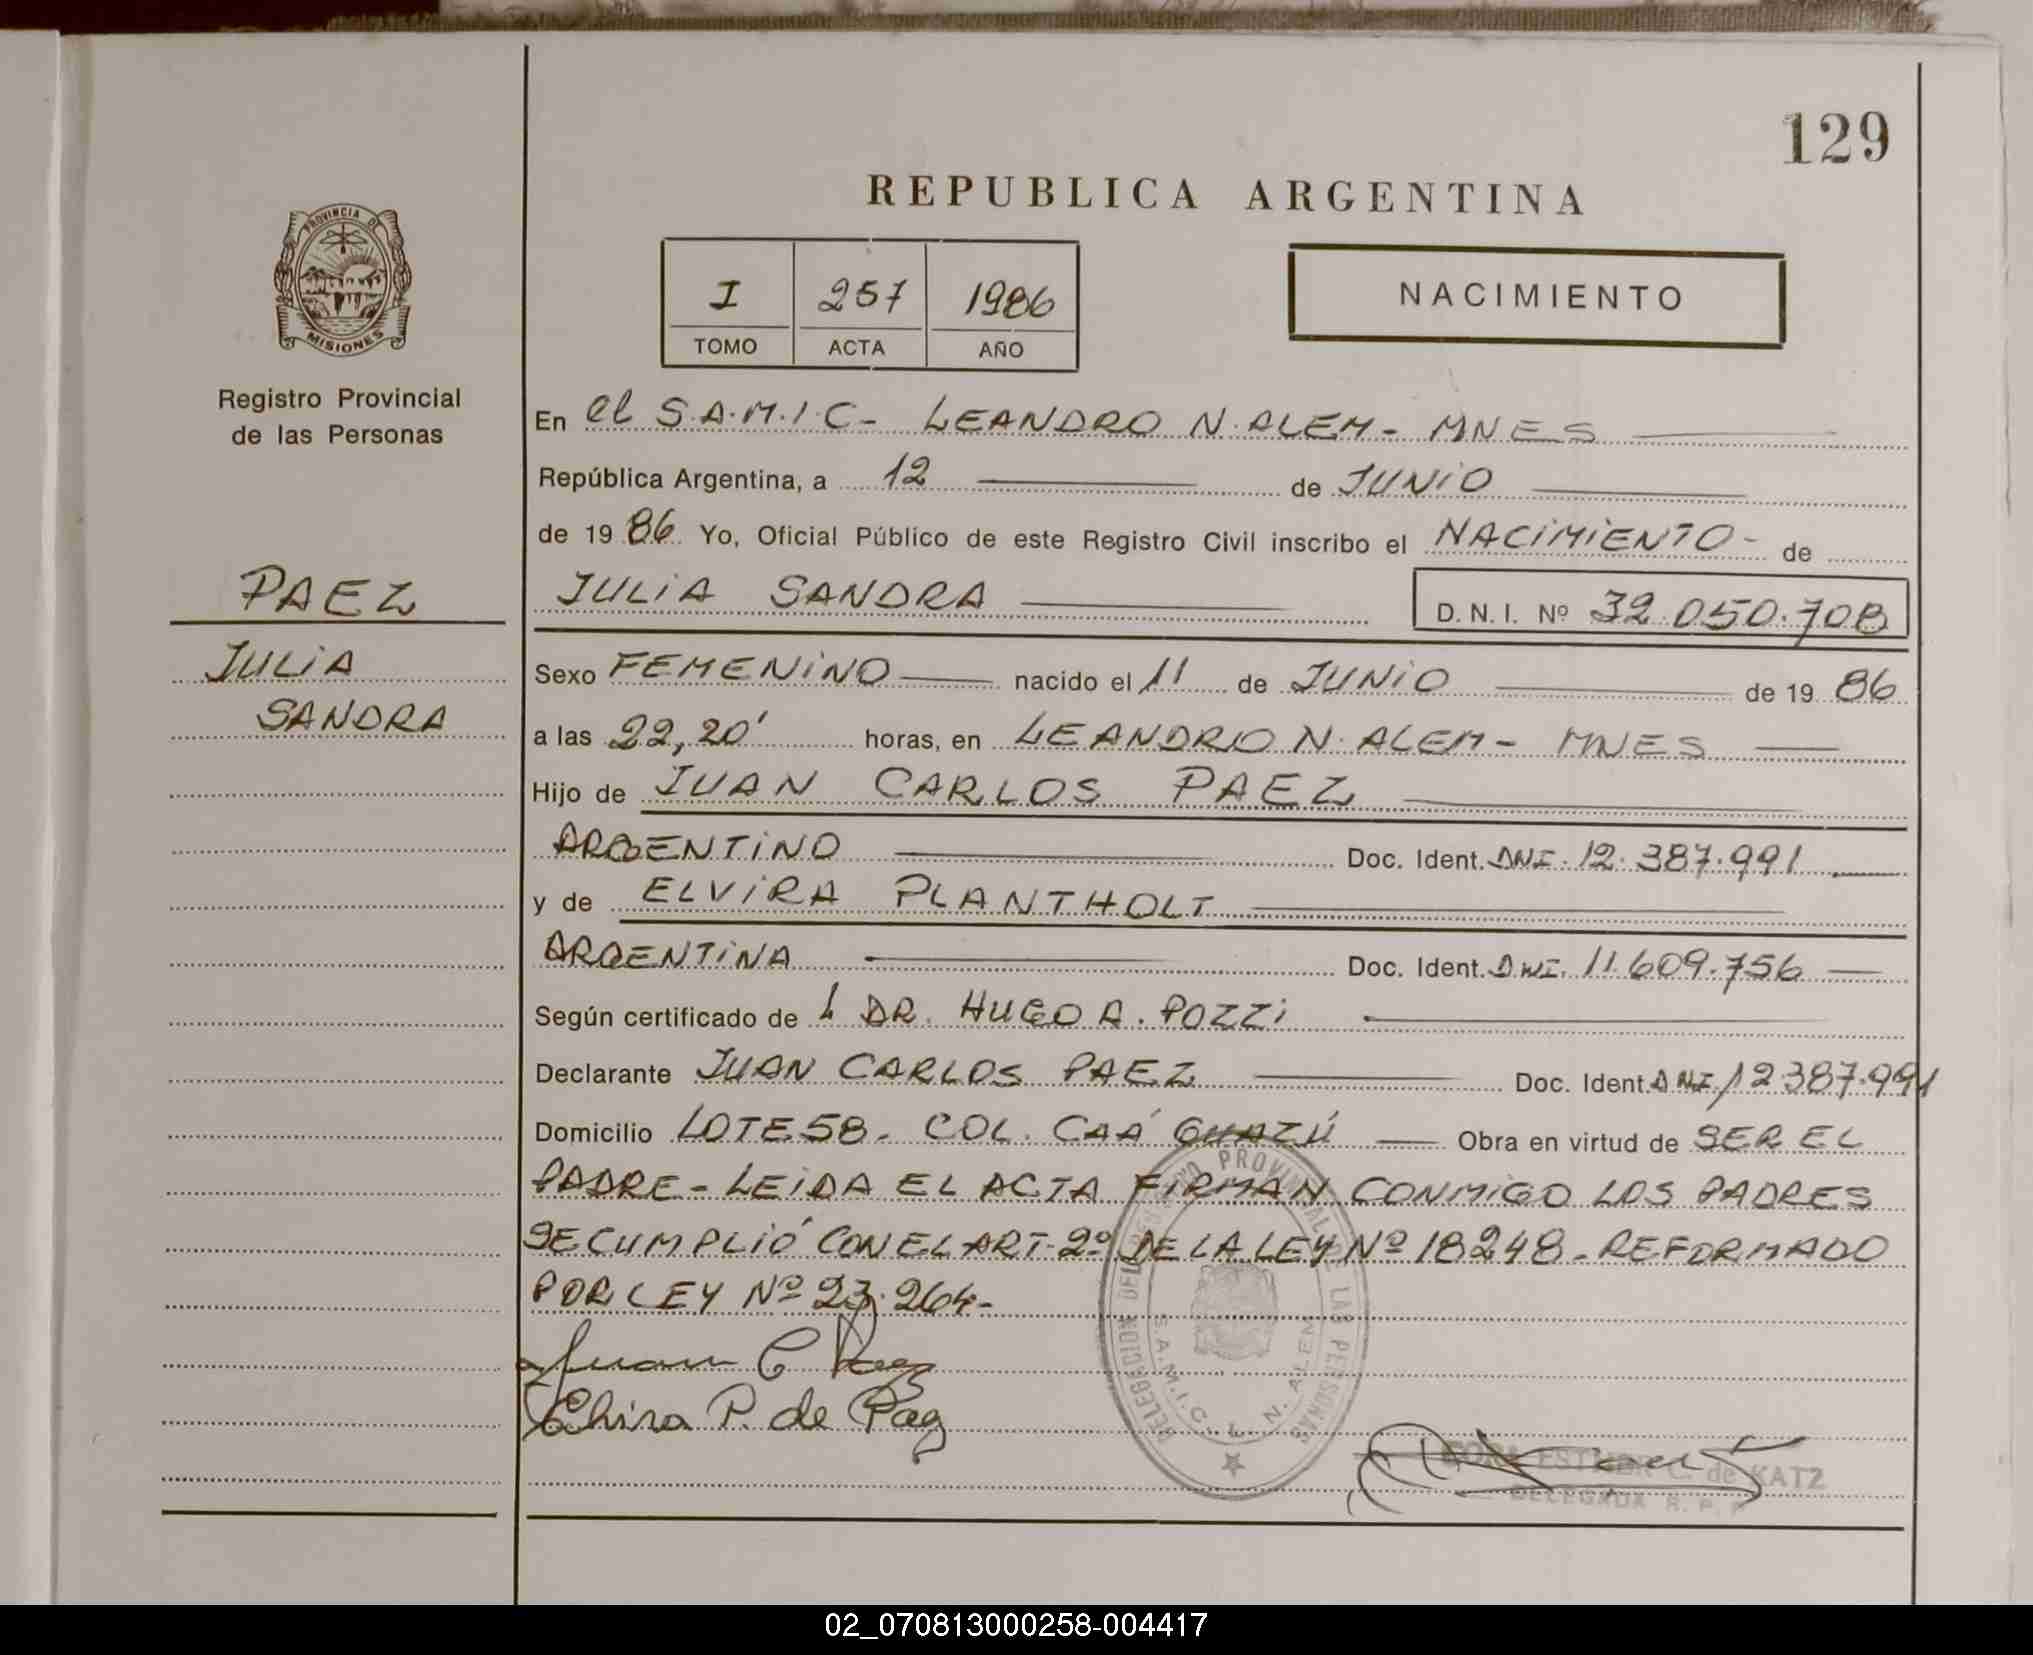 129
REPUBLICA ARGENTINA
PROVINCIA DE
MISIONES
Registro Provincial
de las Personas
I 257 1986
TOMO ACTA AÑO
NACIMIENTO
En el S.A.M.I.C- LEANDRO N. ALEM- MNES
República Argentina, a 12 de JUNIO
de 1986 Yo, Oficial Público de este Registro Civil inscribo el NACIMIENTO- de
PAEZ
JULIA
SANDRA
JULIA SANDRA D.N.I. Nº 32.050.708
Sexo FEMENINO nacido el 11 de JUNIO de 1986
a las 22,20' horas, en LEANDRO N. ALEM- MNES
Hijo de JUAN CARLOS PAEZ
ARGENTINO Doc. Ident. DNI. 12.387.991
y de ELVIRA PLANTHOLT
ARGENTINA Doc. Ident. DNI. 11.609.756
Según certificado de L DR. HUGO A. POZZI
Declarante JUAN CARLOS PAEZ Doc. Ident. DNI 12387.991
Domicilio LOTE 58- COL. CAÁ GUAZÚ Obra en virtud de SER EL
PADRE- LEIDA EL ACTA FIRMAN CONMIGO LOS PADRES
SE CUMPLIÓ CON EL ART-2º DE LA LEY Nº 18248- REFORMADO
POR LEY Nº 23.264-
Juan C Paez
Elvira P. de Paez
DELEGACION DEL REGISTRO PROVINCIAL DE LAS PERSONAS
S.A.M.I.C. L. N. ALEM
ESTHER C. de KATZ
DELEGADA R. P. P.
02_070813000258-004417